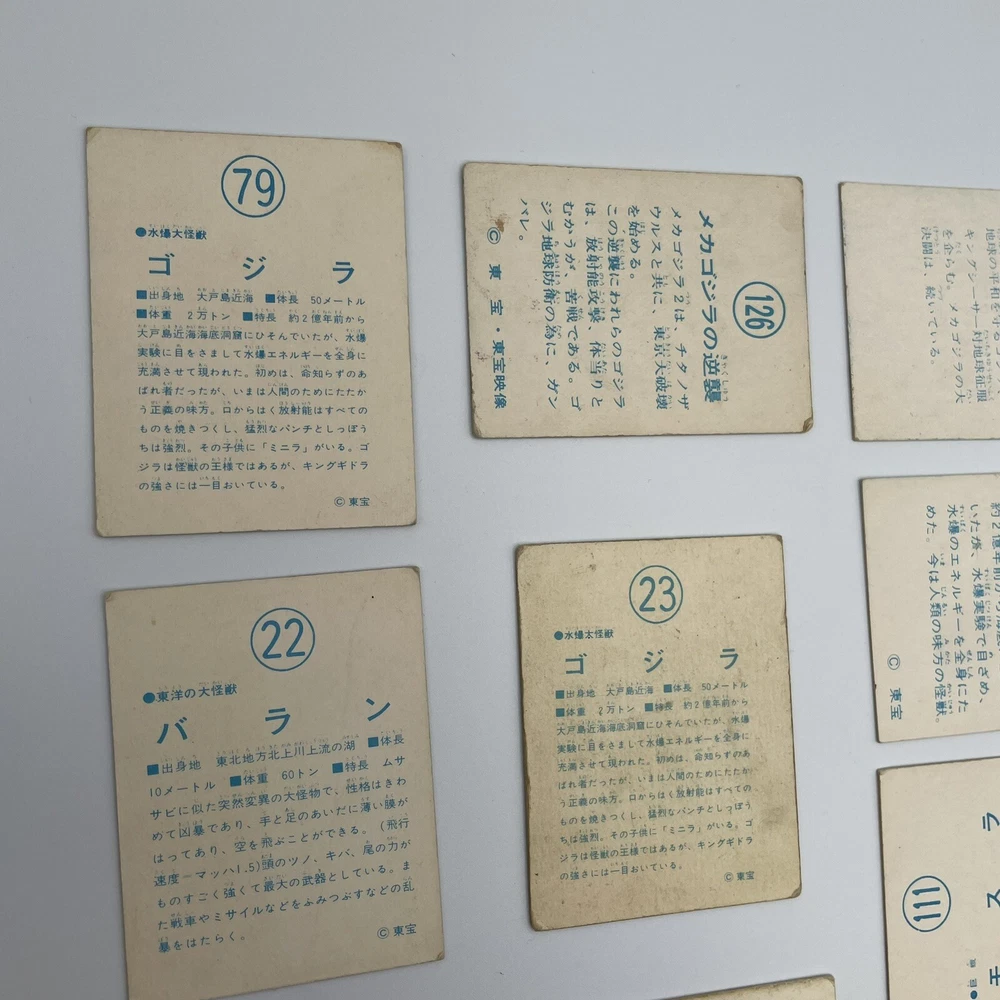 79
●水爆大怪獣
ゴジラ
■出身地 大戸島近海 ■体長 50メートル
■体重 2万トン ■特長 約2億年前から
大戸島近海海底洞窟にひそんでいたが、水爆
実験に目をさまして水爆エネルギーを全身に
充満させて現われた。初めは、命知らずのあ
ばれ者だったが、いまは人間のためにたたか
う正義の味方。口からはく放射能はすべての
ものを焼きつくし、猛烈なパンチとしっぽう
ちは強烈。その子供に「ミニラ」がいる。ゴ
ジラは怪獣の王様ではあるが、キングギドラ
の強さには一目おいている。
©東宝
126
メカゴジラの逆襲
メカゴジラ2は、チタノザ
ウルスと共に、東京大破壊
を始める。
この逆襲にわれらのゴジラ
は、放射能攻撃、体当りと
むかうが、苦戦である。ゴ
ジラ地球防衛の為に、ガン
バレ。
© 東宝・東宝映像
キングシーサー対地球征服
を企らむ、メカゴジラの大
決闘は、続いている。
22
●東洋の大怪獣
バラン
■出身地 東北地方北上川上流の湖 ■体長
10メートル ■体重 60トン ■特長 ムサ
サビに似た突然変異の大怪物で、性格はきわ
めて凶暴であり、手と足のあいだに薄い膜が
はってあり、空を飛ぶことができる。(飛行
速度－マッハ1.5)頭のツノ、キバ、尾の力が
ものすごく強くて最大の武器としている。ま
た戦車やミサイルなどをふみつぶすなどの乱
暴をはたらく。
©東宝
23
●水爆大怪獣
ゴジラ
■出身地 大戸島近海 ■体長 50メートル
■体重 2万トン ■特長 約2億年前から
大戸島近海海底洞窟にひそんでいたが、水爆
実験に目をさまして水爆エネルギーを全身に
充満させて現われた。初めは、命知らずのあ
ばれ者だったが、いまは人間のためにたたか
う正義の味方。口からはく放射能はすべての
ものを焼きつくし、猛烈なパンチとしっぽう
ちは強烈。その子供に「ミニラ」がいる。ゴ
ジラは怪獣の王様ではあるが、キングギドラ
の強さには一目おいている。
©東宝
いたが、水爆実験で目ざめ、
水爆のエネルギーを全身にた
めた。今は人類の味方の怪獣。
© 東宝
111